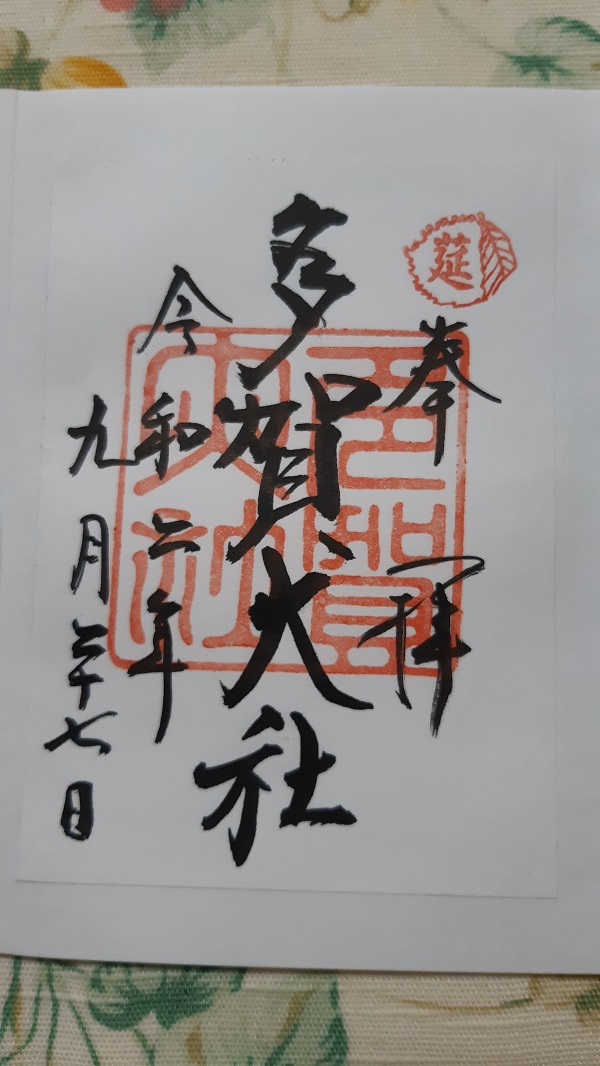 莚
奉拝
多賀大社
令和二年
九月二十七日
多賀大社